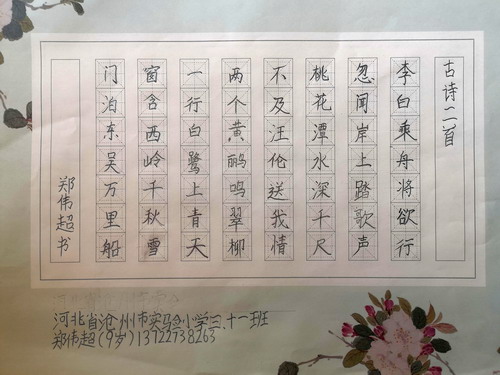 古诗二首
李白乘舟将欲行
忽闻岸上踏歌声
桃花潭水深千尺
不及汪伦送我情
两个黄鹂鸣翠柳
一行白鹭上青天
窗含西岭千秋雪
门泊东吴万里船
郑伟超书
河北省沧州市实验小学三.十一班
郑伟超(9岁)13722738263